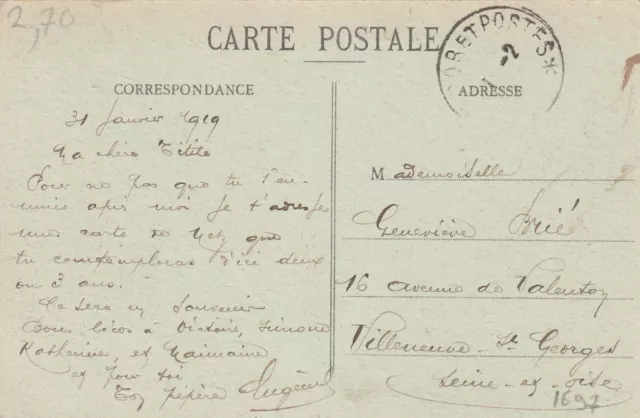 2,70
CARTE POSTALE
TRESOR ET POSTES *
2
CORRESPONDANCE
ADRESSE
31 Janvier 1919
Ma chère Titite
Pour ne pas que tu t'en-
nuies après moi je t'adresse
une carte de que
tu contempleras d'ici deux
ou 3 ans.
Ce sera un souvenir
Bons à Victoire, Simone
Katherine, et
et pour toi
Ton pépère Eugène
Mademoiselle
Geneviève Brié
16 avenue de Valenton
Villeneuve-St Georges
Seine-et-oise
1697